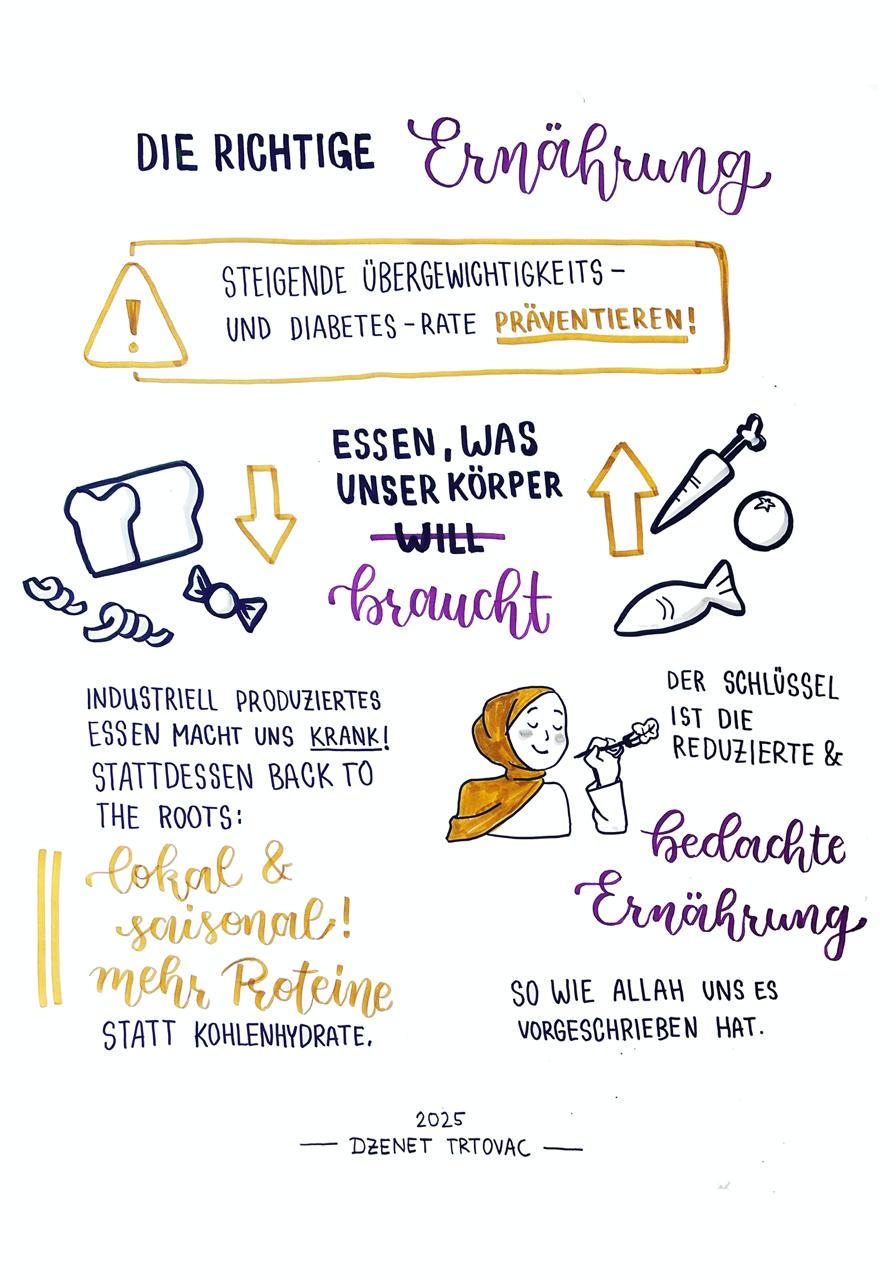 DIE RICHTIGE Ernährung
STEIGENDE ÜBERGEWICHTIGKEITS-
UND DIABETES-RATE PRÄVENTIEREN!
ESSEN, WAS
UNSER KÖRPER
WILL
braucht
INDUSTRIELL PRODUZIERTES
ESSEN MACHT UNS KRANK!
STATTDESSEN BACK TO
THE ROOTS:
lokal &
saisonal!
mehr Proteine
STATT KOHLENHYDRATE.
DER SCHLÜSSEL
IST DIE
REDUZIERTE &
bedachte
Ernährung
SO WIE ALLAH UNS ES
VORGESCHRIEBEN HAT.
2025
— DZENET TRTOVAC —